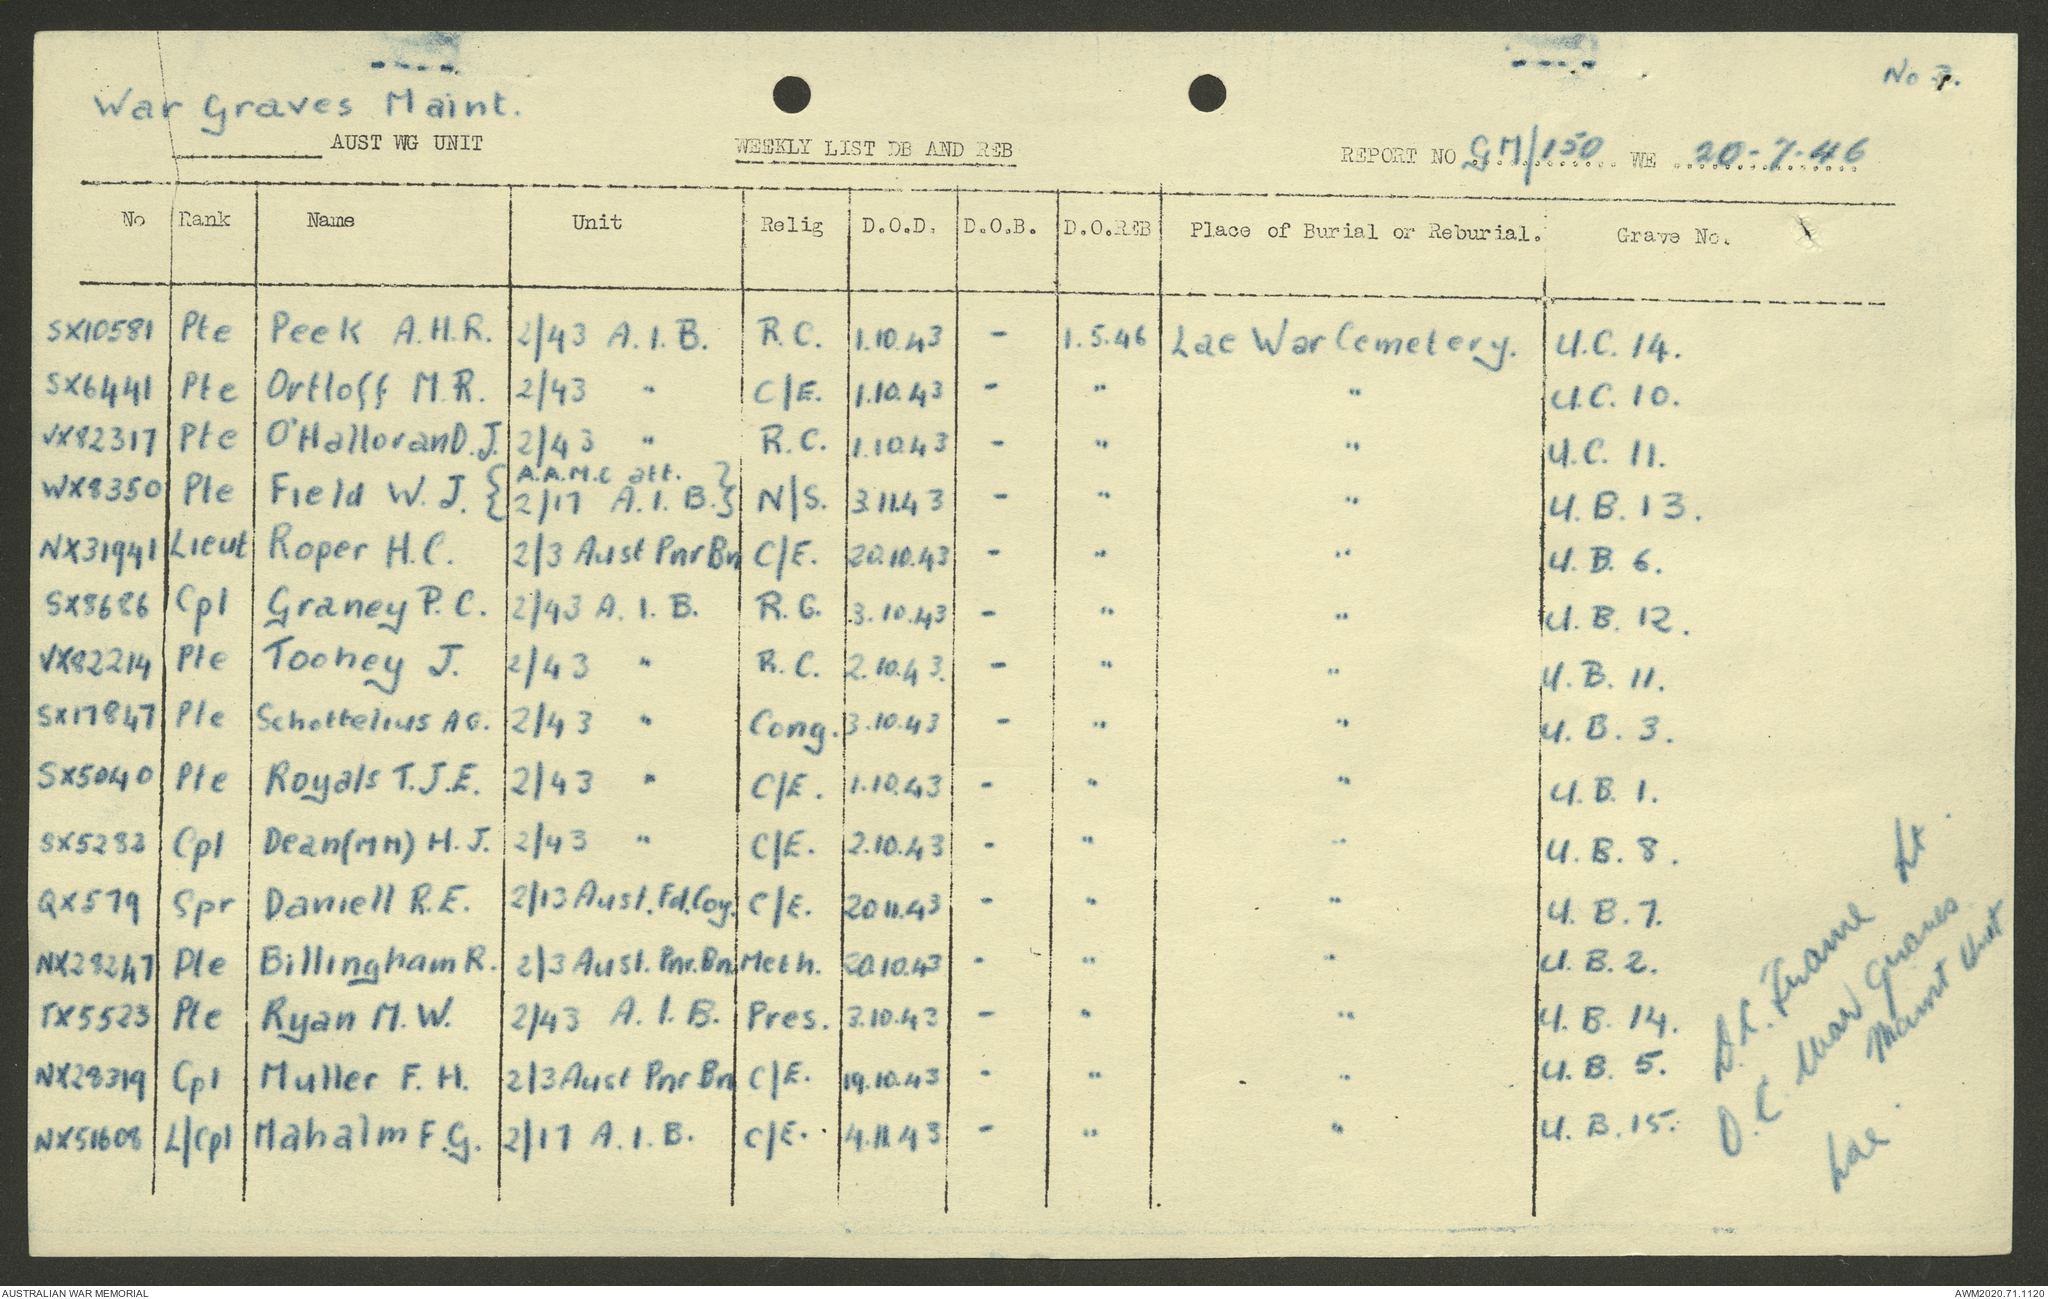 No 3.
War Graves Maint.
AUST WG UNIT WEEKLY LIST DB AND REB REPORT NO GM/150 WE 20-7-46
No Rank Name Unit Relig D.O.D. D.O.B. D.O.REB Place of Burial or Reburial. Grave No.
SX10581 Pte Peek A.H.R. 2/43 A.I.B. R.C. 1.10.43 - 1.5.46 Lae War Cemetery. U.C. 14.
SX6441 Pte Ortloff M.R. 2/43 " C/E. 1.10.43 - " " U.C. 10.
VX82317 Pte O'Halloran D.J. 2/43 " R.C. 1.10.43 - " " U.C. 11.
WX8350 Pte Field W.J. { A.A.M.C att. } 2/17 A.I.B. N/S. 3.11.43 - " " U.B. 13.
NX31941 Lieut Roper H.C. 2/3 Aust Pnr Bn C/E. 20.10.43 - " " U.B. 6.
SX8686 Cpl Graney P.C. 2/43 A.I.B. R.C. 3.10.43 - " " U.B. 12.
VX82214 Pte Toohey J. 2/43 " R.C. 2.10.43. - " " U.B. 11.
SX17847 Pte Schottelius AG. 2/43 " Cong. 3.10.43 - " " U.B. 3.
SX5040 Pte Royals T.J.E. 2/43 " C/E. 1.10.43 - " " U.B. 1.
SX5282 Cpl Dean (MM) H.J. 2/43 " C/E. 2.10.43 - " " U.B. 8.
QX579 Spr Daniell R.E. 2/13 Aust. Fd. Coy. C/E. 20.11.43 - " " U.B. 7.
NX28247 Pte Billingham R. 2/3 Aust. Pnr. Bn. Meth. 20.10.43 - " " U.B. 2.
TX5523 Pte Ryan M.W. 2/43 A.I.B. Pres. 3.10.43 - " " U.B. 14.
NX28319 Cpl Muller F.H. 2/3 Aust Pnr Bn C/E. 19.10.43 - " " U.B. 5.
NX51608 L/Cpl Mahalm F.G. 2/17 A.I.B. C/E. 4.11.43 - " " U.B. 15.
Lt.
O.C. War Graves
Maint Unit
Lae.
AUSTRALIAN WAR MEMORIAL AWM2020.71.1120